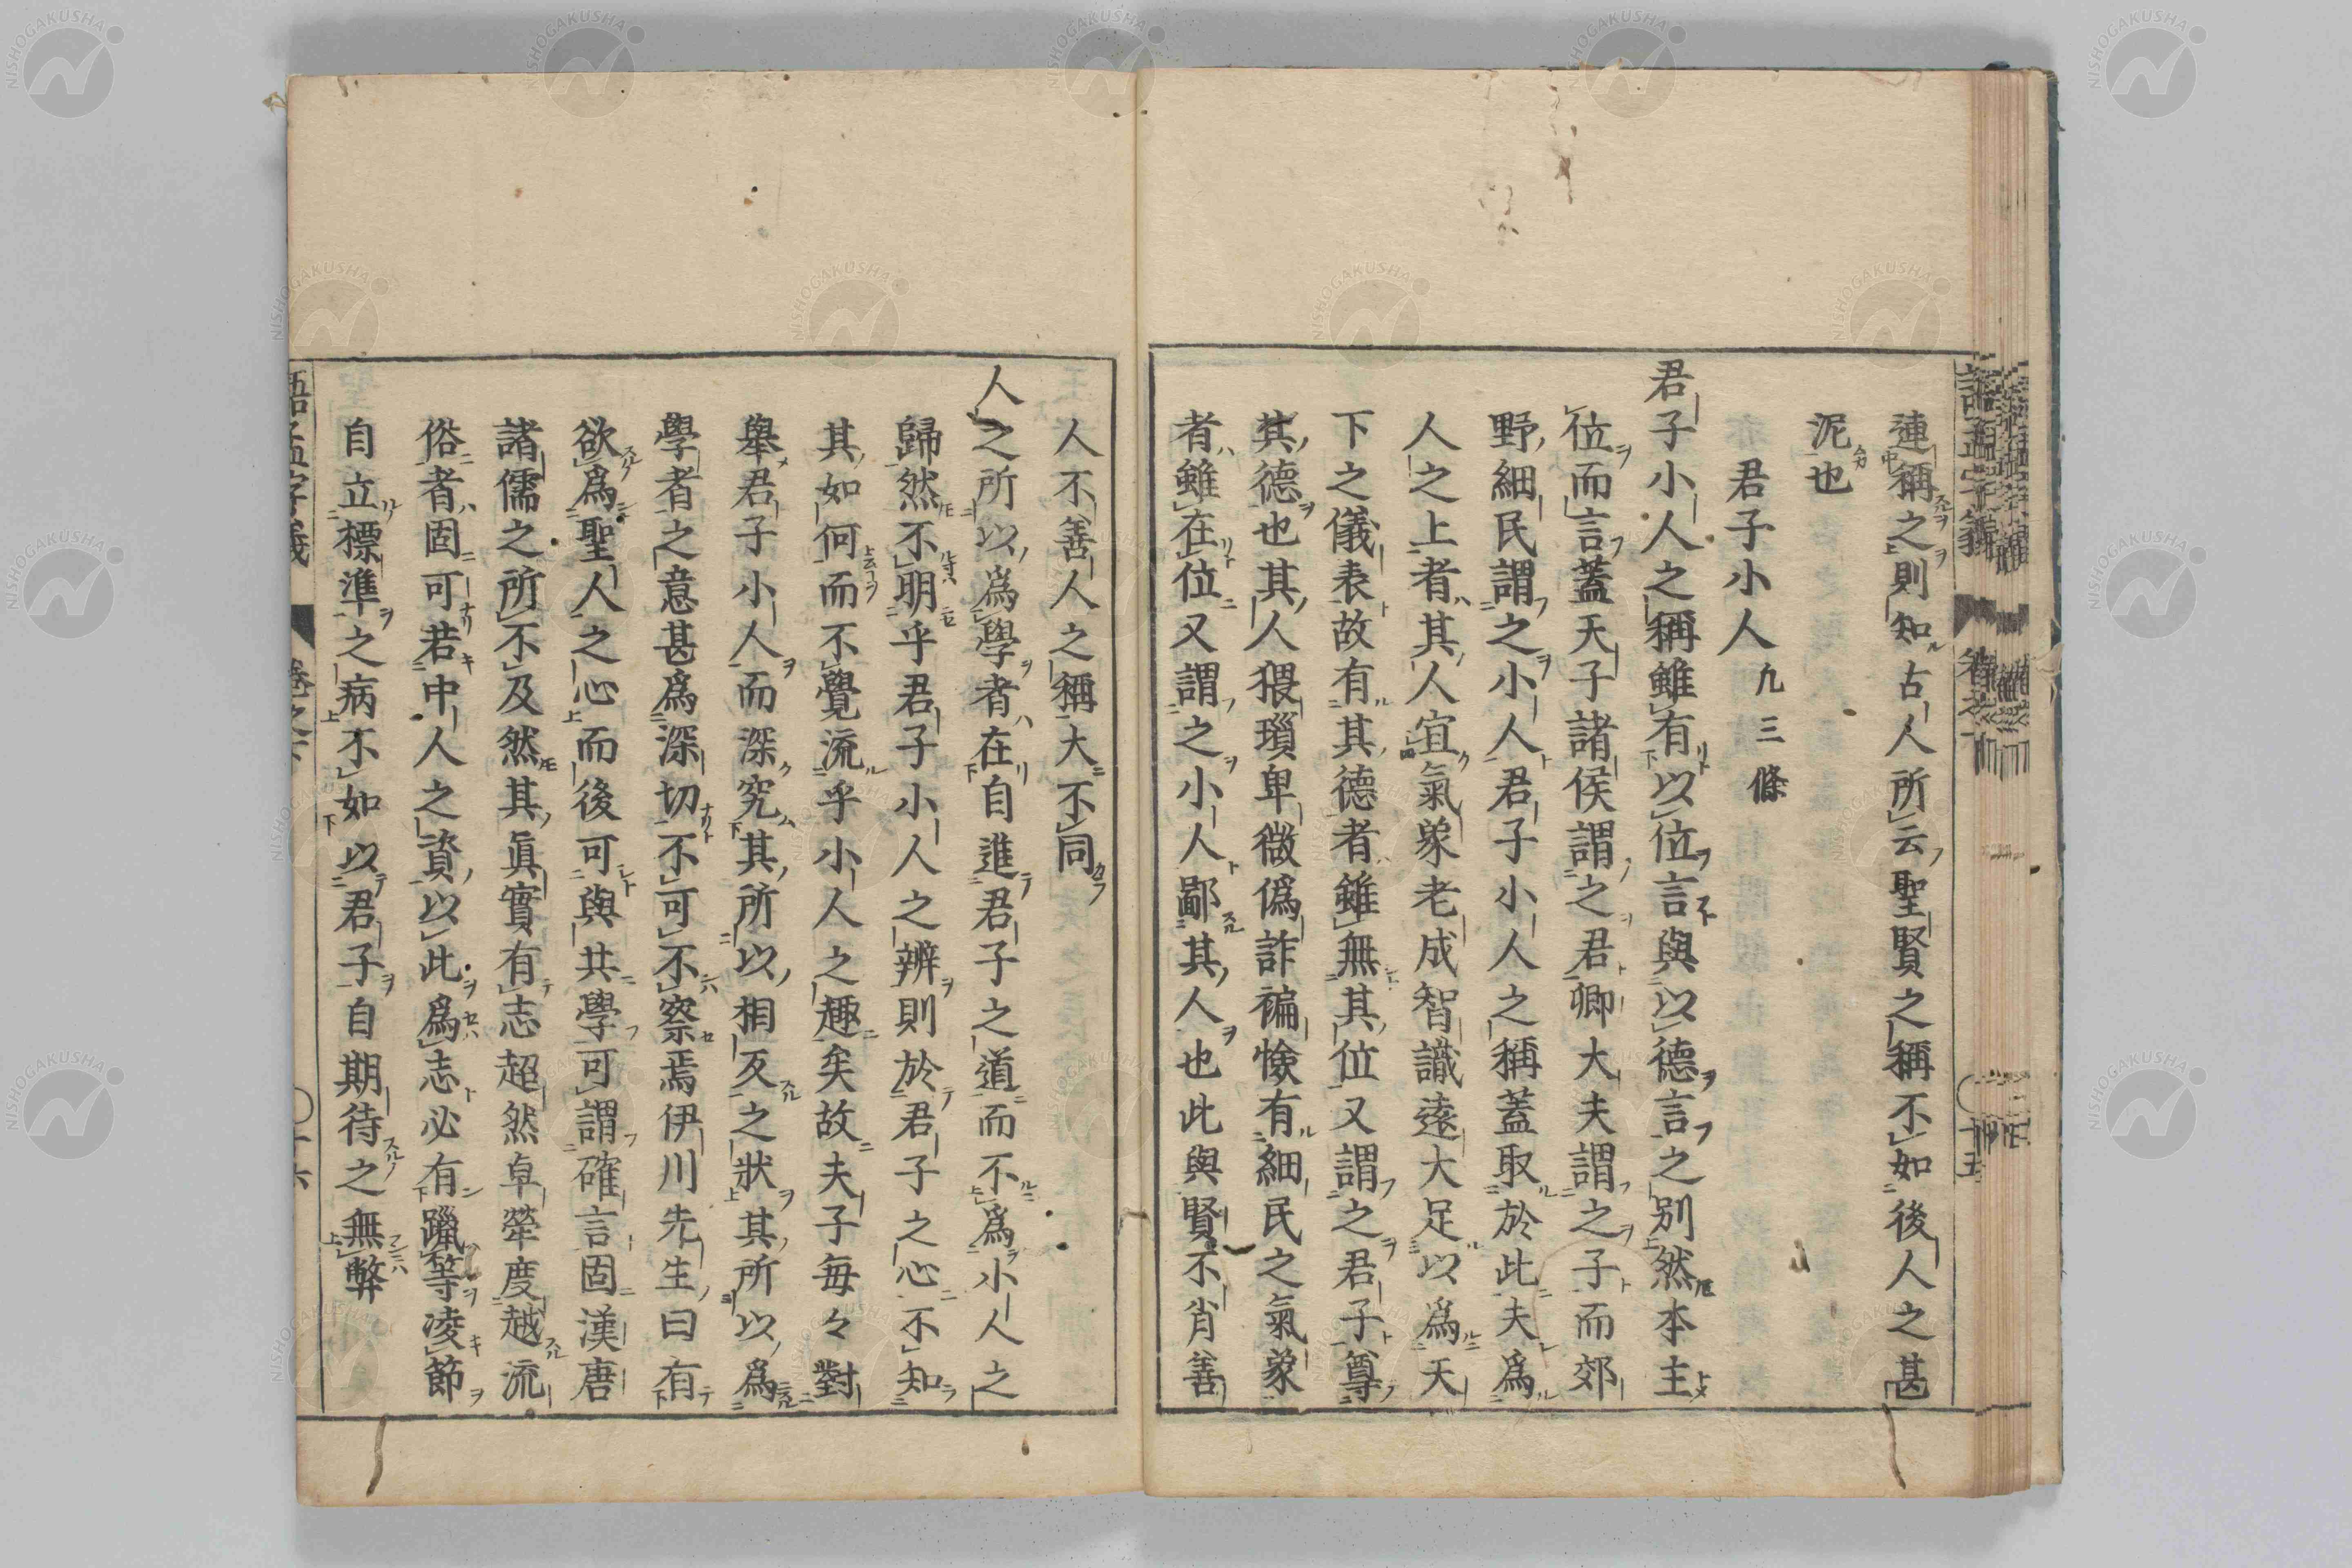 連稱之則知古人所云聖賢之稱不如後人之甚
泥也
君子小人 凡三條
君子小人之稱雖有以位言與以德言之別然本主
位而言蓋天子諸侯謂之君卿大夫謂之子而郊
野細民謂之小人君子小人之稱蓋取於此夫爲
人之上者其人宜氣象老成智識遠大足以爲天
下之儀表故有其德者雖無其位又謂之君子尊
其德也其人猥瑣卑微僞詐褊憸有細民之氣象
者雖在位又謂之小人鄙其人也此與賢不肖善
人不善人之稱大不同
人之所以爲學者在自進君子之道而不爲小人之
歸然不明乎君子小人之辨則於君子之心不知
其如何而不覺流乎小人之趣矣故夫子每々對
舉君子小人而深究其所以相反之狀其所以爲
學者之意甚爲深切不可不察焉伊川先生曰有
欲爲聖人之心而後可與共學可謂確言固漢唐
諸儒之所不及然其眞實有志超然卓犖度越流
俗者固可若中人之資以此爲志必有躐等凌節
自立標準之病不如以君子自期待之無弊
語孟字義 卷之下 十六